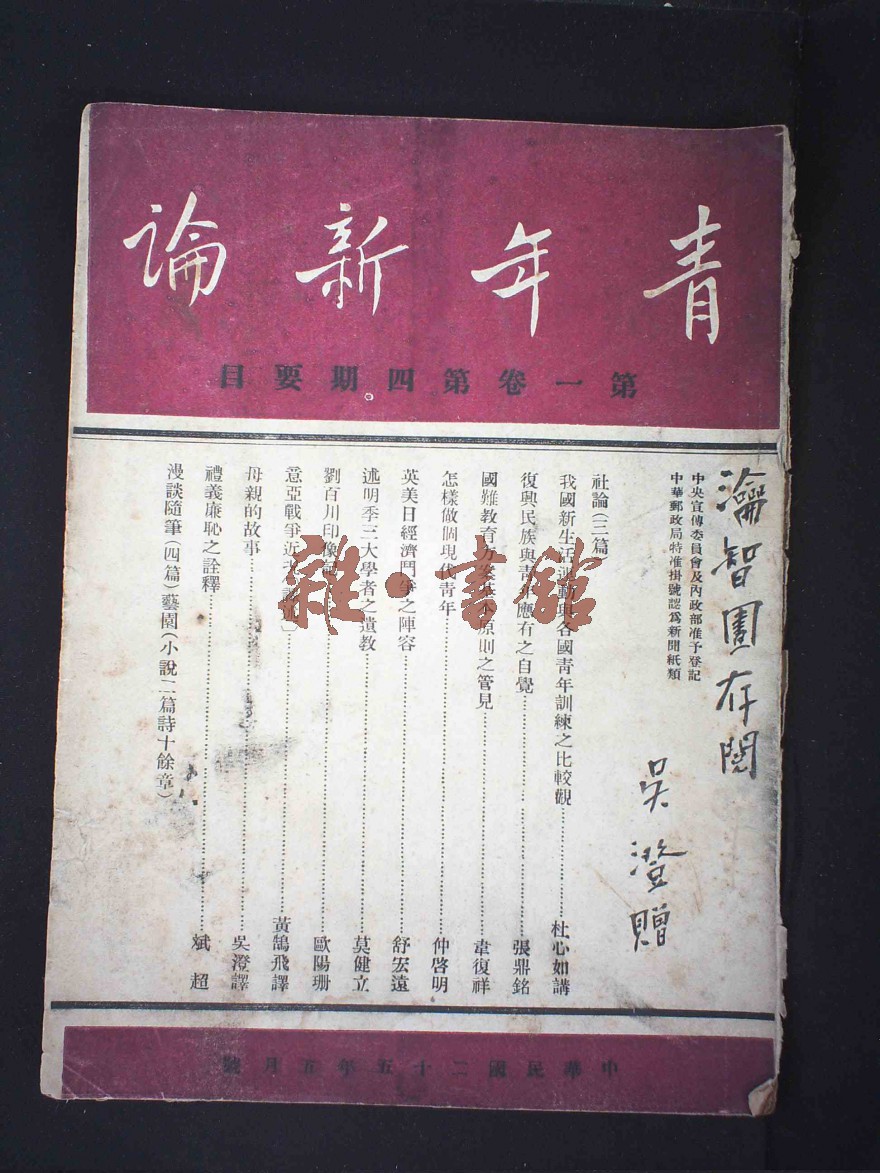 青年新論
第一卷第四期要目
中央宣傳委員會及內政部准予登記
中華郵政局特准掛號認為新聞紙類
瀹智圖存閱
吳澄贈
社論(三篇)
我國新生活運動與各國青年訓練之比較觀 杜心如講
復興民族與青年應有之自覺 張鼎銘
國難教育方案基本原則之管見 韋復祥
怎樣做個現代青年 仲啓明
英美日經濟鬥爭之陣容 舒宏遠
述明季三大學者之遺教 莫健立
劉百川印像記 歐陽珊
意亞戰爭近 黃鵠飛譯
母親的故事 吳澄譯
禮義廉恥之詮釋 斌超
漫談隨筆(四篇)藝園(小說二篇詩十餘章)
中華民國二十五年五月號
雜·書館